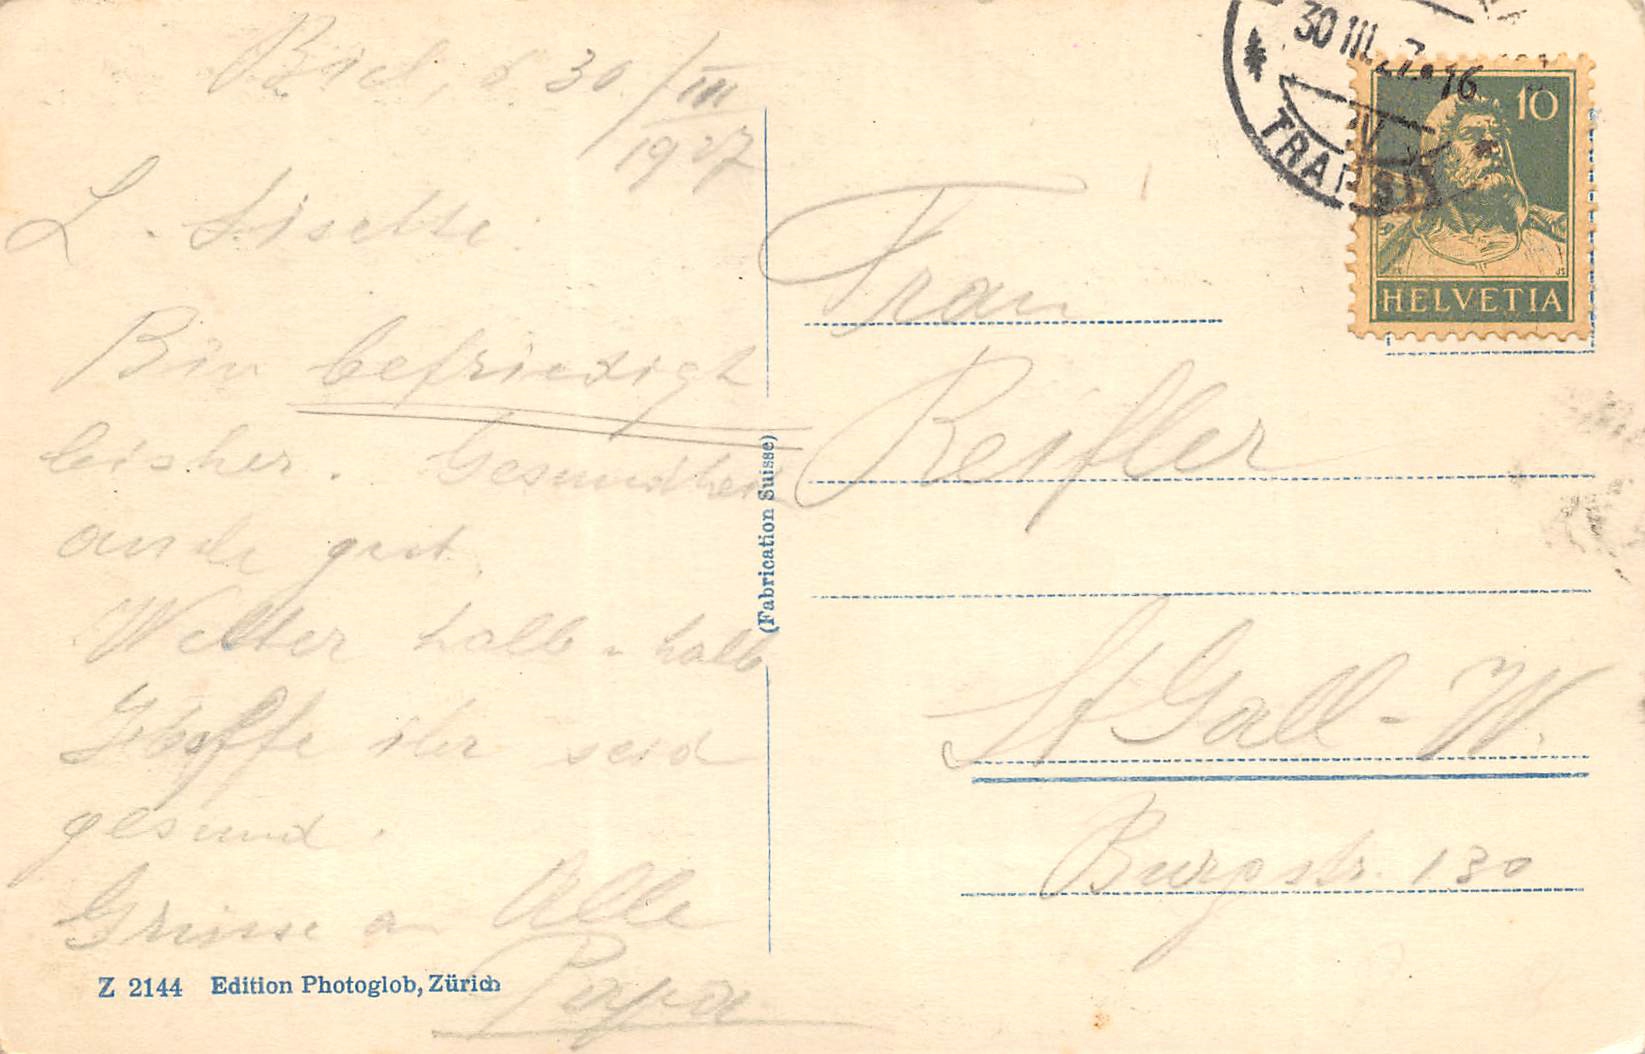 Biel, d 30. / III
1927
L. Lisette
Bin befriedigt
bisher. Gesundheit
auch gut.
Wetter halb-halb
Ihr seid
gesund.
Grüsse an Alle
Papa
Z 2144 Edition Photoglob, Zürich
(Fabrication Suisse)
30 III. 27. 16
IV
10
HELVETIA
Frau
Reifler
St Gall-W.
Burgstr. 130